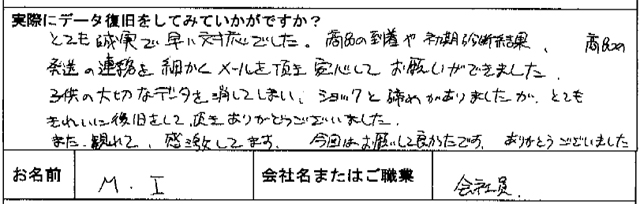 実際にデータ復旧をしてみていかがですか？
とても誠実で早い対応でした。商品の到着や初期診断結果、商品の
発送の連絡を細かくメールを頂き安心してお願いができました。
子供の大切なデータを消してしまい、ショックと諦めがありましたが、とても
きれいに復旧をして頂きありがとうございました。
また、観れて、感激してます。今回はお願いして良かったです。ありがとうございました
お名前 M. I 会社名またはご職業 会社員.